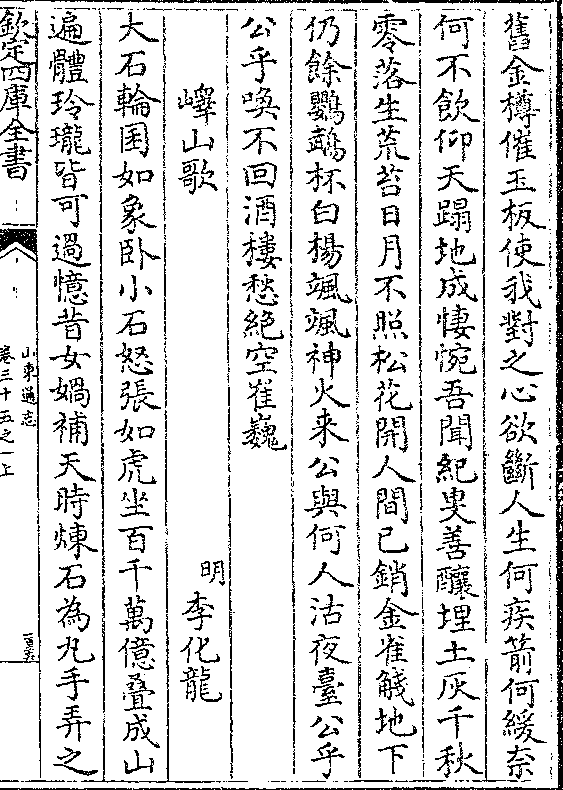 舊金樽催玉板使我對之心欲斷人生何疾箭何緩奈
何不飲仰天蹋地成悽惋吾聞紀叟善釀埋土灰千秋
零落生荒苔日月不照松花開人間已銷金雀觴地下
仍餘鸚鵡杯白楊颯颯神火来公與何人沽夜臺公乎
公乎喚不回酒樓愁絕空崔巍
嶧山歌 明 李化龍
大石輪囷如象卧小石怒張如虎坐百千萬億叠成山
遍體玲瓏皆可過憶昔女媧補天時煉石為丸手弄之
欽定四庫全書
山東通志
卷三十五之一上